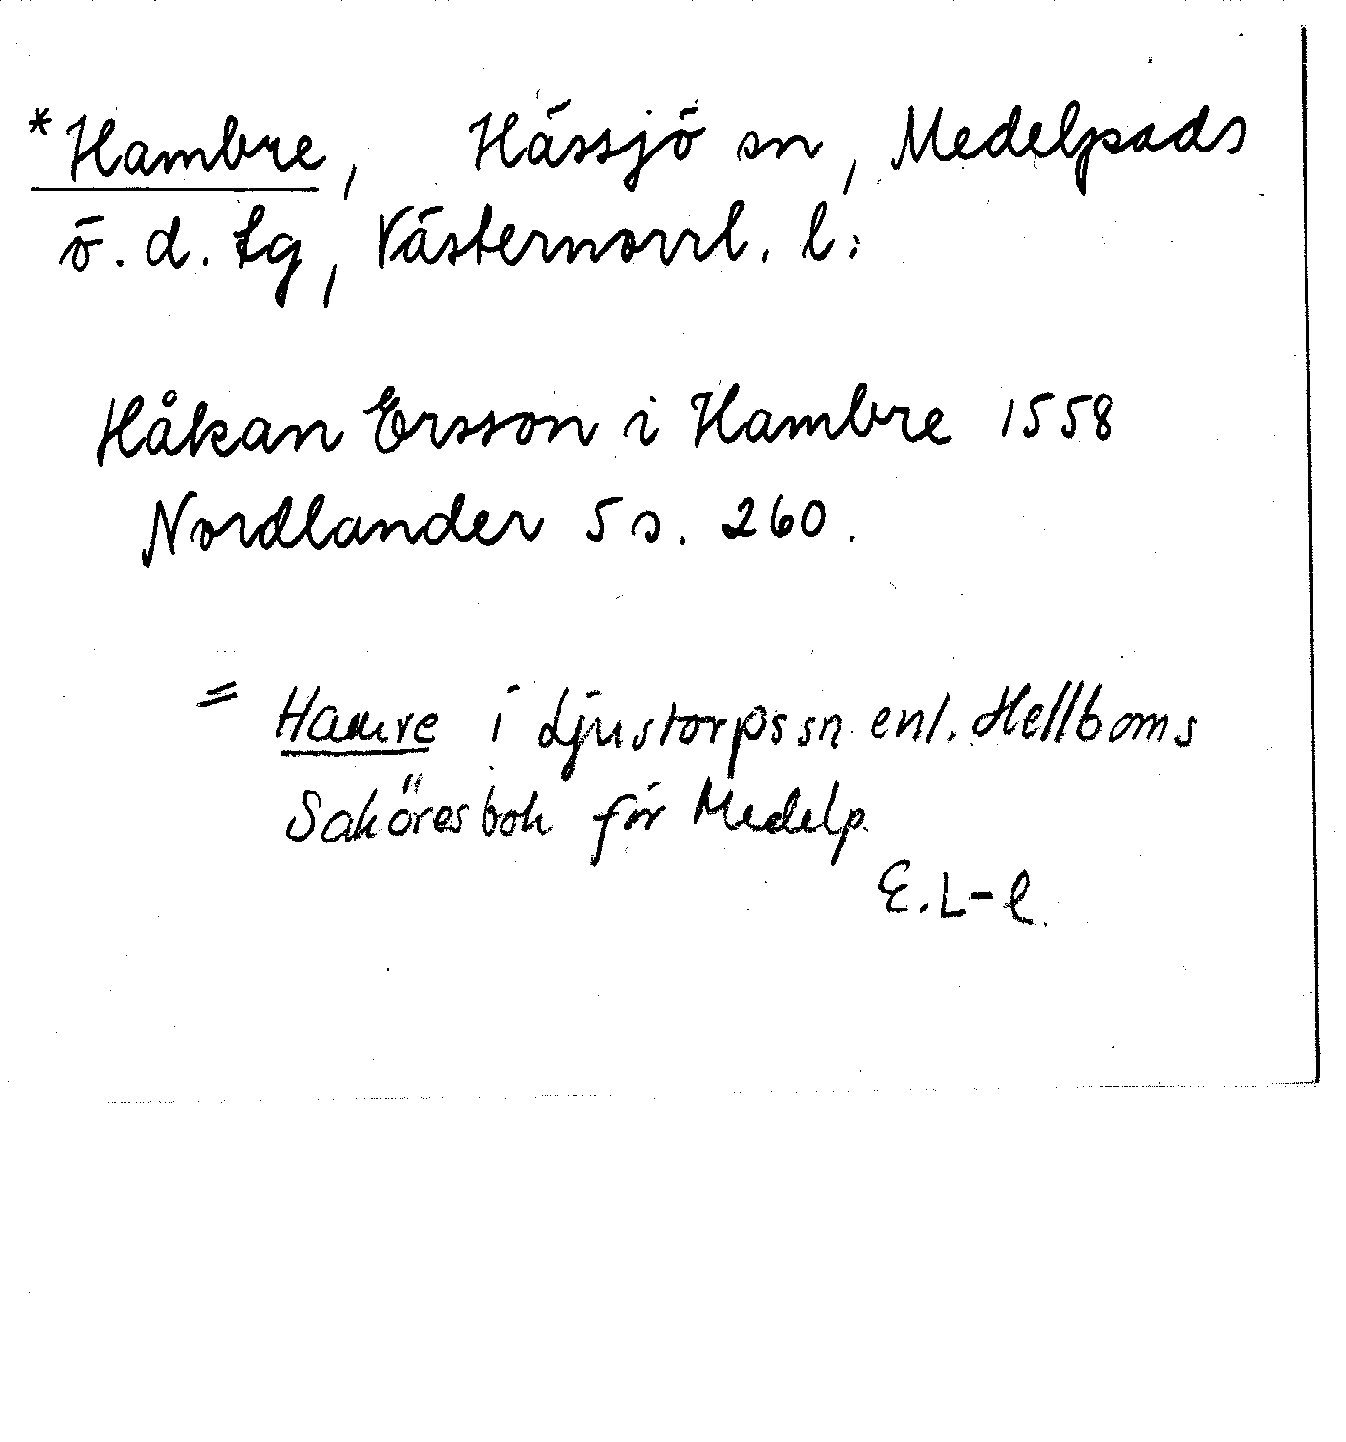 *Hambre, Hässjö sn, Medelpads
ö. d. tg, Västernorrl. l.
Håkan Ersson i Hambre 1558
Nordlander 5 s. 260.
= Hamre i Ljustorps sn enl. Hellboms
Saköresbok för Medelp.
E. L-l.